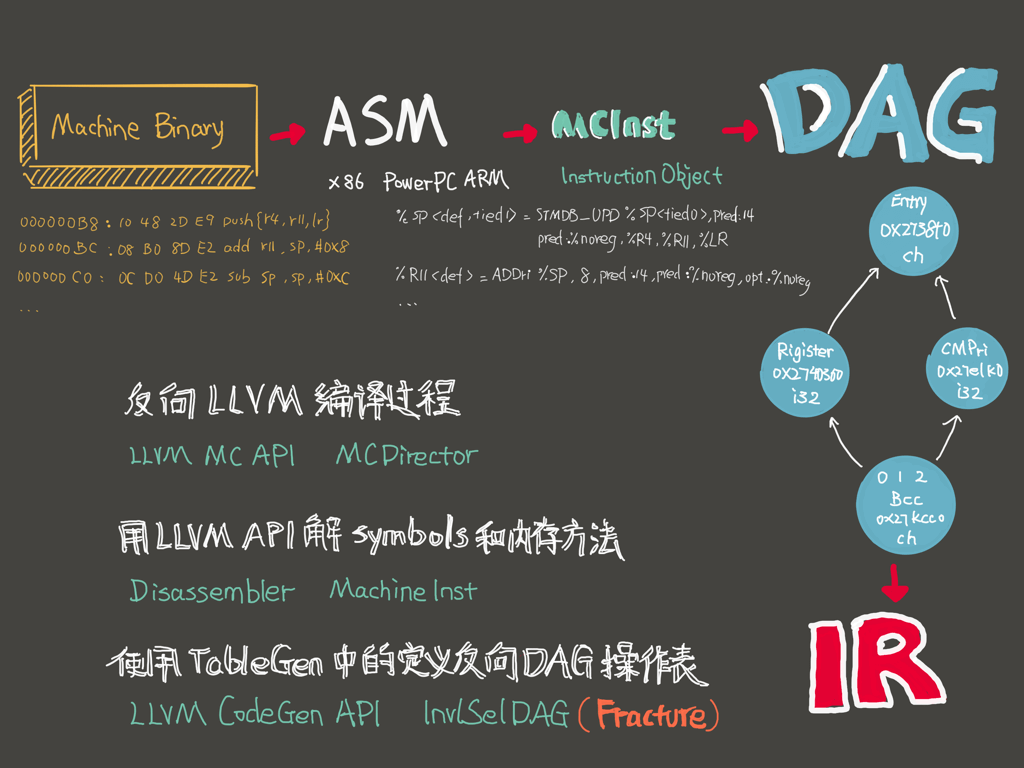 Machine Binary
ASM
MCInst
DAG
x86 PowerPC ARM
Instruction Object
000000B8 : 10 48 2D E9 push{r4, r11, lr}
000000BC : 08 B0 8D E2 add r11, sp, #0x8
000000C0 : 0C D0 4D E2 sub sp, sp, #0xC
...
%SP<def, tied1> = STMDB_UPD %SP<tied0>, pred:14
pred:%noreg, %R4, %R11, %LR
%R11<def> = ADDri %SP, 8, pred:14, pred:%noreg, opt:%noreg
...
Entry
ch
Rigister
0X2740360
i32
CMPri
i32
0 1 2
Bcc
0x27kcc0
ch
IR
反向LLVM编译过程
LLVM MC API MCDirector
用LLVM API解symbols和内存方法
Disassembler MachineInst
使用TableGen中的定义反向DAG操作表
LLVM CodeGen API InvISelDAG (Fracture)